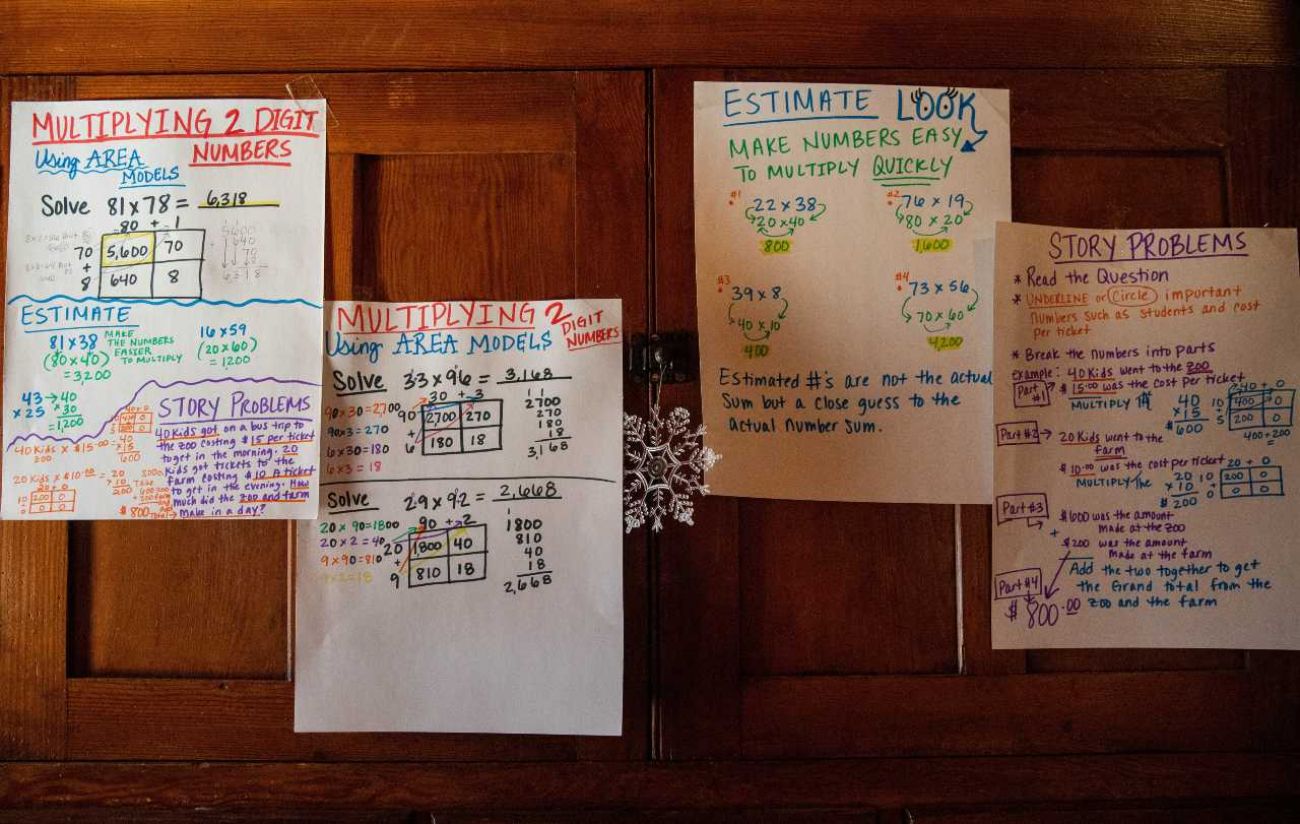 MULTIPLYING 2 DIGIT
NUMBERS
Using AREA
MODELS
Solve 81 x 78 = 6,318
80 + 1
70 5,600 70
+
8 640 8
5600
640
70
8
6318
ESTIMATE
81 x 38
(80 x 40)
= 3,200
MAKE
THE NUMBERS
EASIER
TO MULTIPLY
16 x 59
(20 x 60)
= 1200
43 → 40
x 25 x 30
= 1,200
STORY PROBLEMS
40 Kids got on a bus trip to
the zoo costing $15 per ticket
to get in the morning. 20
Kids got tickets to the
farm costing $10 A ticket
to get in the evening. How
much did the zoo and farm
make in a day?
40 Kids x $15.00 = 40
x 15
600
20 Kids x $10.00 = 20
x 10
200
20 + 0
10 200 0
0 0 0
$ 800
MULTIPLYING 2
DIGIT
NUMBERS
Using AREA MODELS
Solve 33 x 96 = 3,168
30 + 3
90 x 30 = 2700
90 x 3 = 270
6 x 30 = 180
6 x 3 = 18
90 2700 270
+
6 180 18
1 1
2700
270
180
18
3,168
Solve 29 x 92 = 2,668
90 + 2
20 x 90 = 1800
20 x 2 = 40
9 x 90 = 810
9 x 2 = 18
20 1800 40
+
9 810 18
1
1800
810
40
18
2,668
ESTIMATE LOOK
MAKE NUMBERS EASY
TO MULTIPLY QUICKLY
#1
22 x 38
20 x 40
800
#2
76 x 19
80 x 20
1,600
#3
39 x 8
40 x 10
400
#4
73 x 56
70 x 60
4,200
Estimated #'s are not the actual
Sum but a close guess to the
actual number sum.
STORY PROBLEMS
* Read the Question
* UNDERLINE or Circle important
numbers such as students and cost
per ticket
* Break the numbers into parts
Example: 40 Kids went to the ZOO
Part #1
$15.00 was the cost per ticket
MULTIPLY
40
x 15
$600
40 + 0
10 400 0
+
5 200 0
400 + 200
Part #2 → 20 Kids went to the
farm
$10.00 was the cost per ticket
MULTIPLY the
20
x 10
$ 200
20 + 0
10 200 0
+
0 0 0
Part #3
$600 was the amount
made at the zoo
+
$200 was the amount
made at the farm
Part #4
Add the two together to get
the Grand total from the
zoo and the farm
$800.00